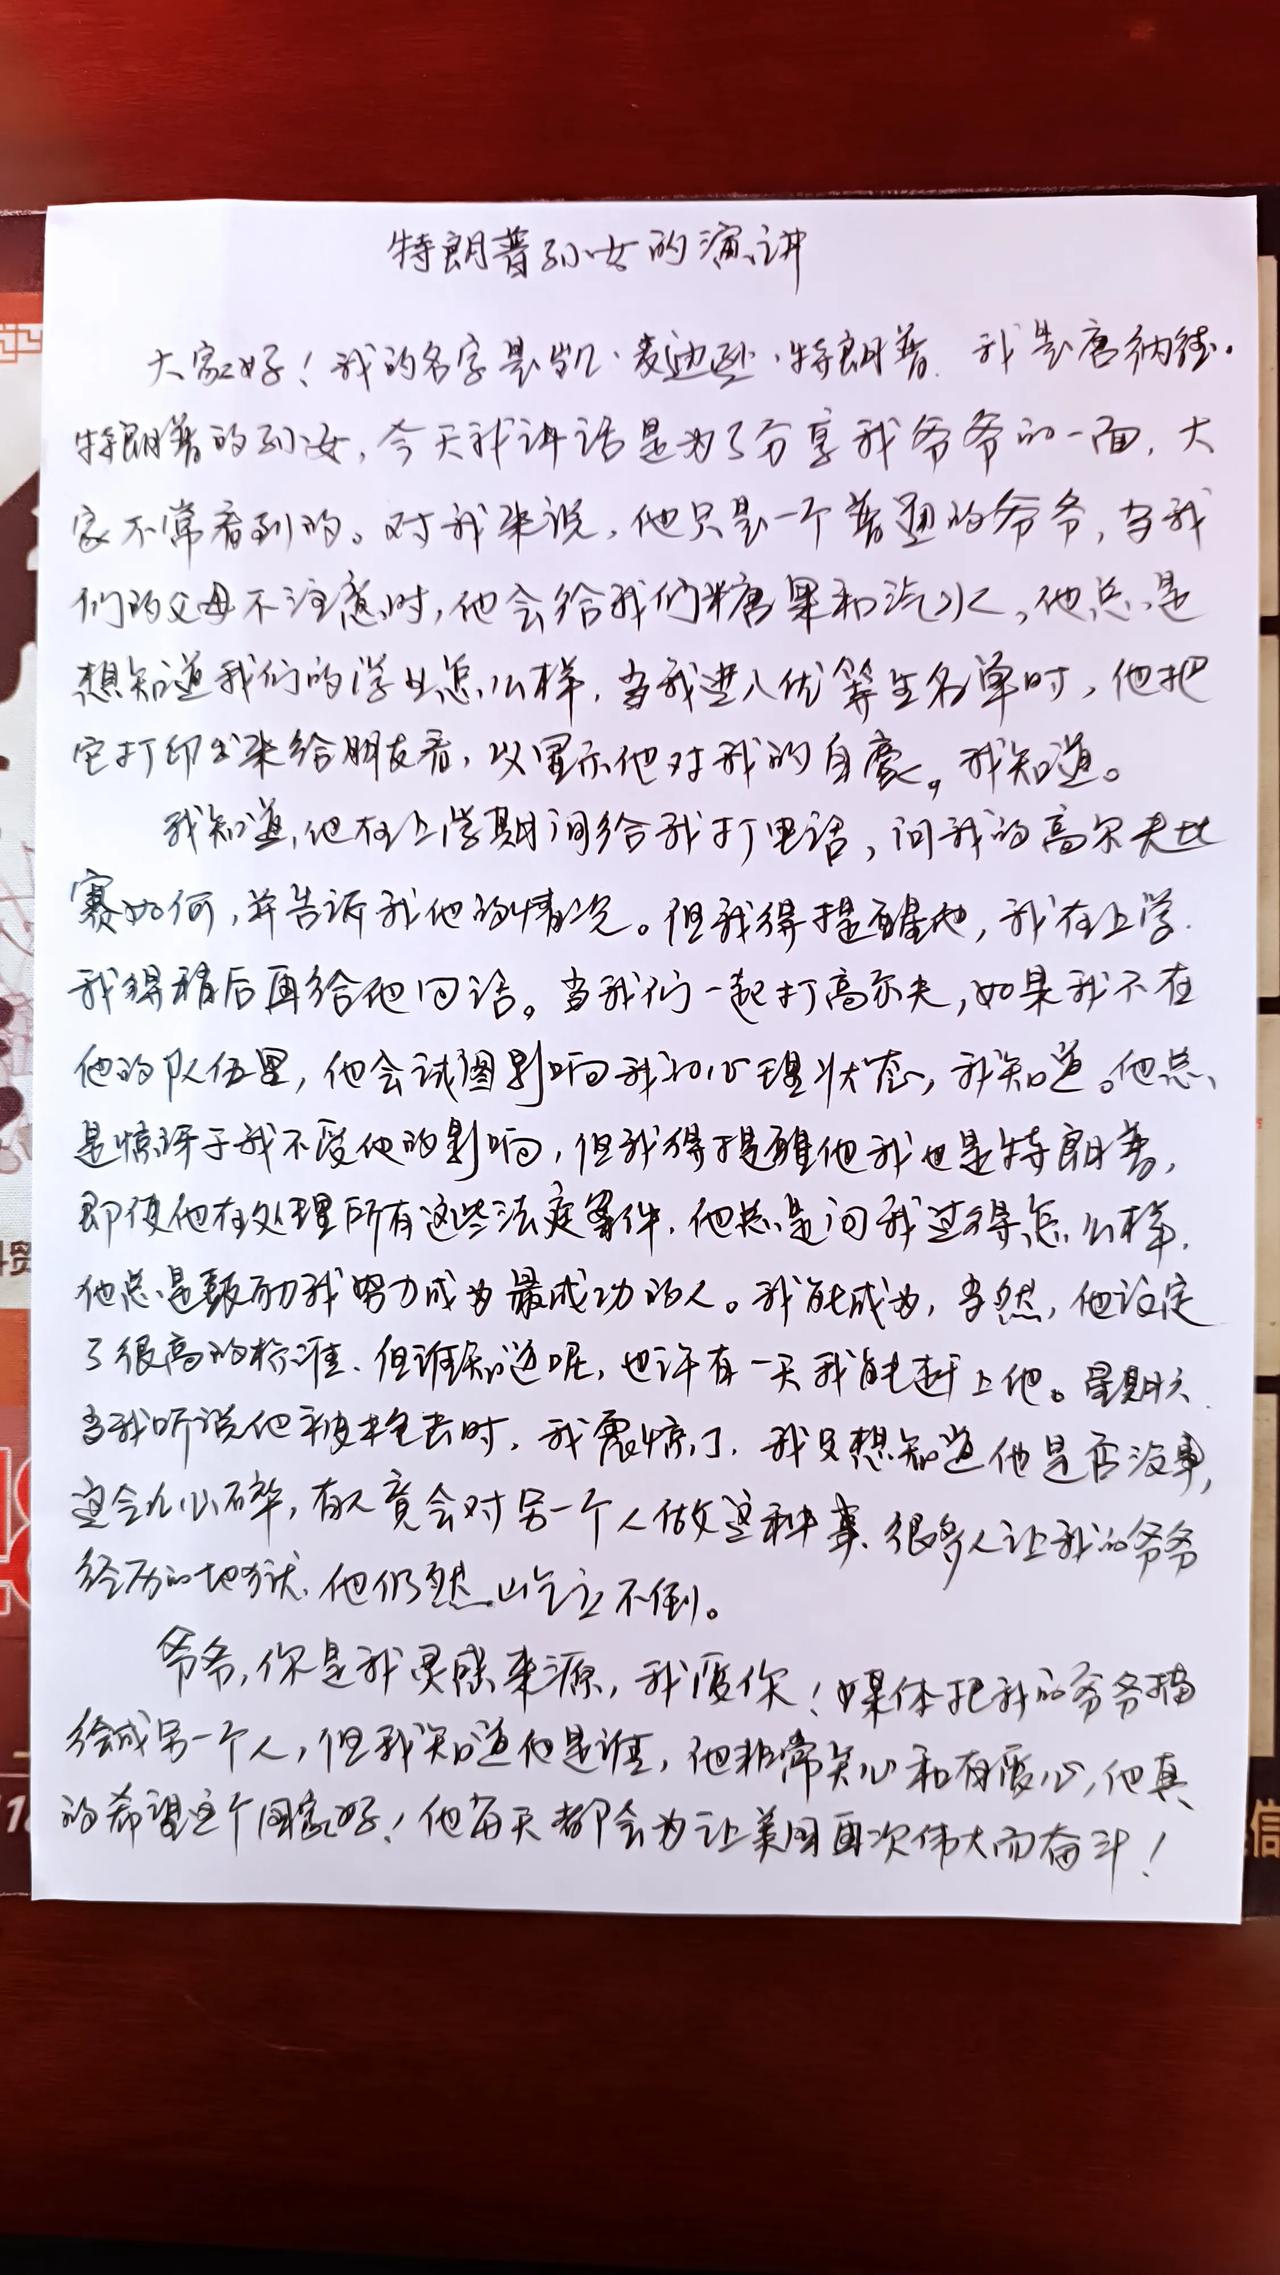 特朗普孙女的演讲
大家好！我的名字是凯·麦迪逊·特朗普，我是唐纳德·
特朗普的孙女，今天我讲话是为了分享我爷爷的一面，大
家不常看到的。对我来说，他只是一个普通的爷爷，当我
们的父母不注意时，他会给我们糖果和汽水，他总是
想知道我们的学业怎么样，当我进入优等生名单时，他把
它打印出来给朋友看，以显示他对我的自豪。我知道。
我知道，他在上学期间给我打电话，问我的高尔夫比
赛如何，并告诉我他的情况。但我得提醒他，我在上学，
我得稍后再给他回话。当我们一起打高尔夫，如果我不在
他的队伍里，他会试图影响我的心理状态，我知道。他总
是惊讶于我不受他的影响，但我得提醒他我也是特朗普，
即使他在处理所有这些法庭案件，他总是问我过得怎么样，
他总是鼓励我努力成为最成功的人。我能成为，当然，他设定
了很高的标准、但谁知道呢，也许有一天我能赶上他。星期六，
当我听说他被枪击时，我震惊了，我只想知道他是否没事，
这令人心碎，有人竟会对另一个人做这种事、很多人让我的爷爷
经历的地狱，他仍然屹立不倒。
爷爷，你是我灵感来源，我爱你！媒体把我的爷爷描
绘成另一个人，但我知道他是谁，他非常关心和有爱心，他真
的希望这个国家好！他每天都会为让美国再次伟大而奋斗！
科贸
信